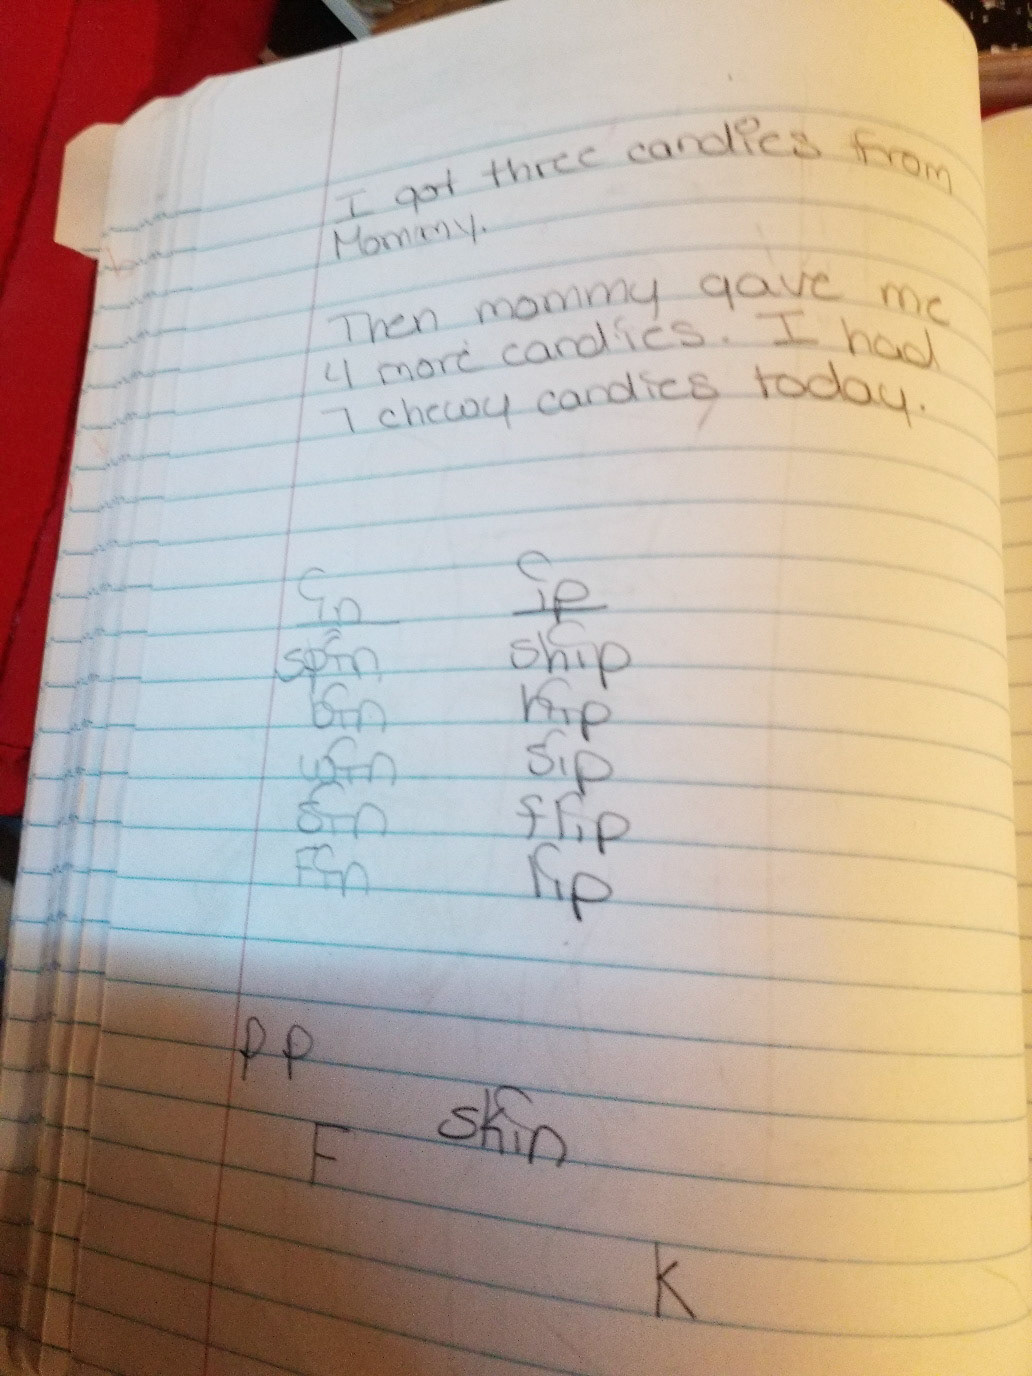 I got three candies from
Mommy.
Then mommy gave me
4 more candies. I had
7 chewy candies today.
in ip
spin ship
bin hip
win sip
sin flip
Fin rip
p p
skin
F
K